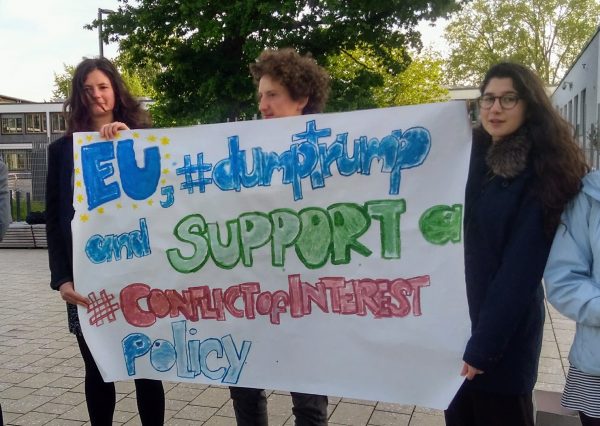 EU, #dumptrump
and SUPPORT a
#CONFLICTofINTEREST
PoLICY